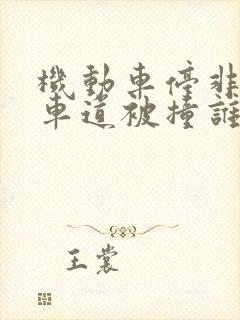 機動車停非
車道被撞誰
王裳